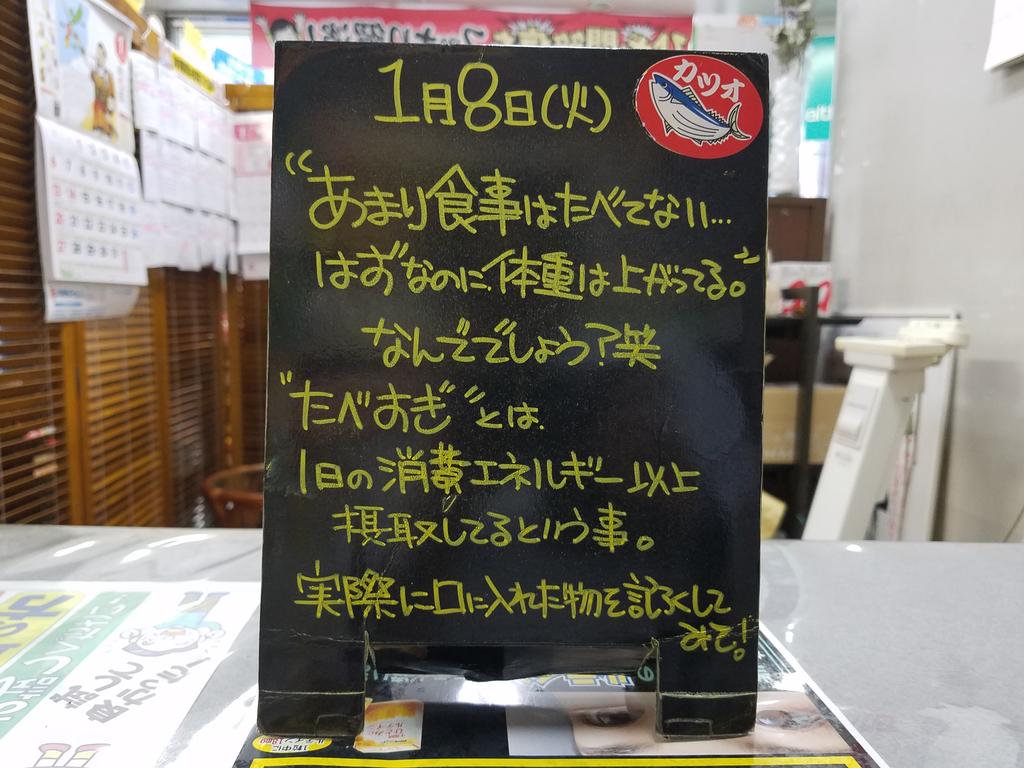 1月8日(火)
カツオ
“あまり食事はたべてない…
はずなのに体重は上がってる。”
なんででしょう?笑
“たべすぎ”とは
1日の消費エネルギー以上
摂取してるという事。
実際に口に入れた物を記ろくして
みて。!